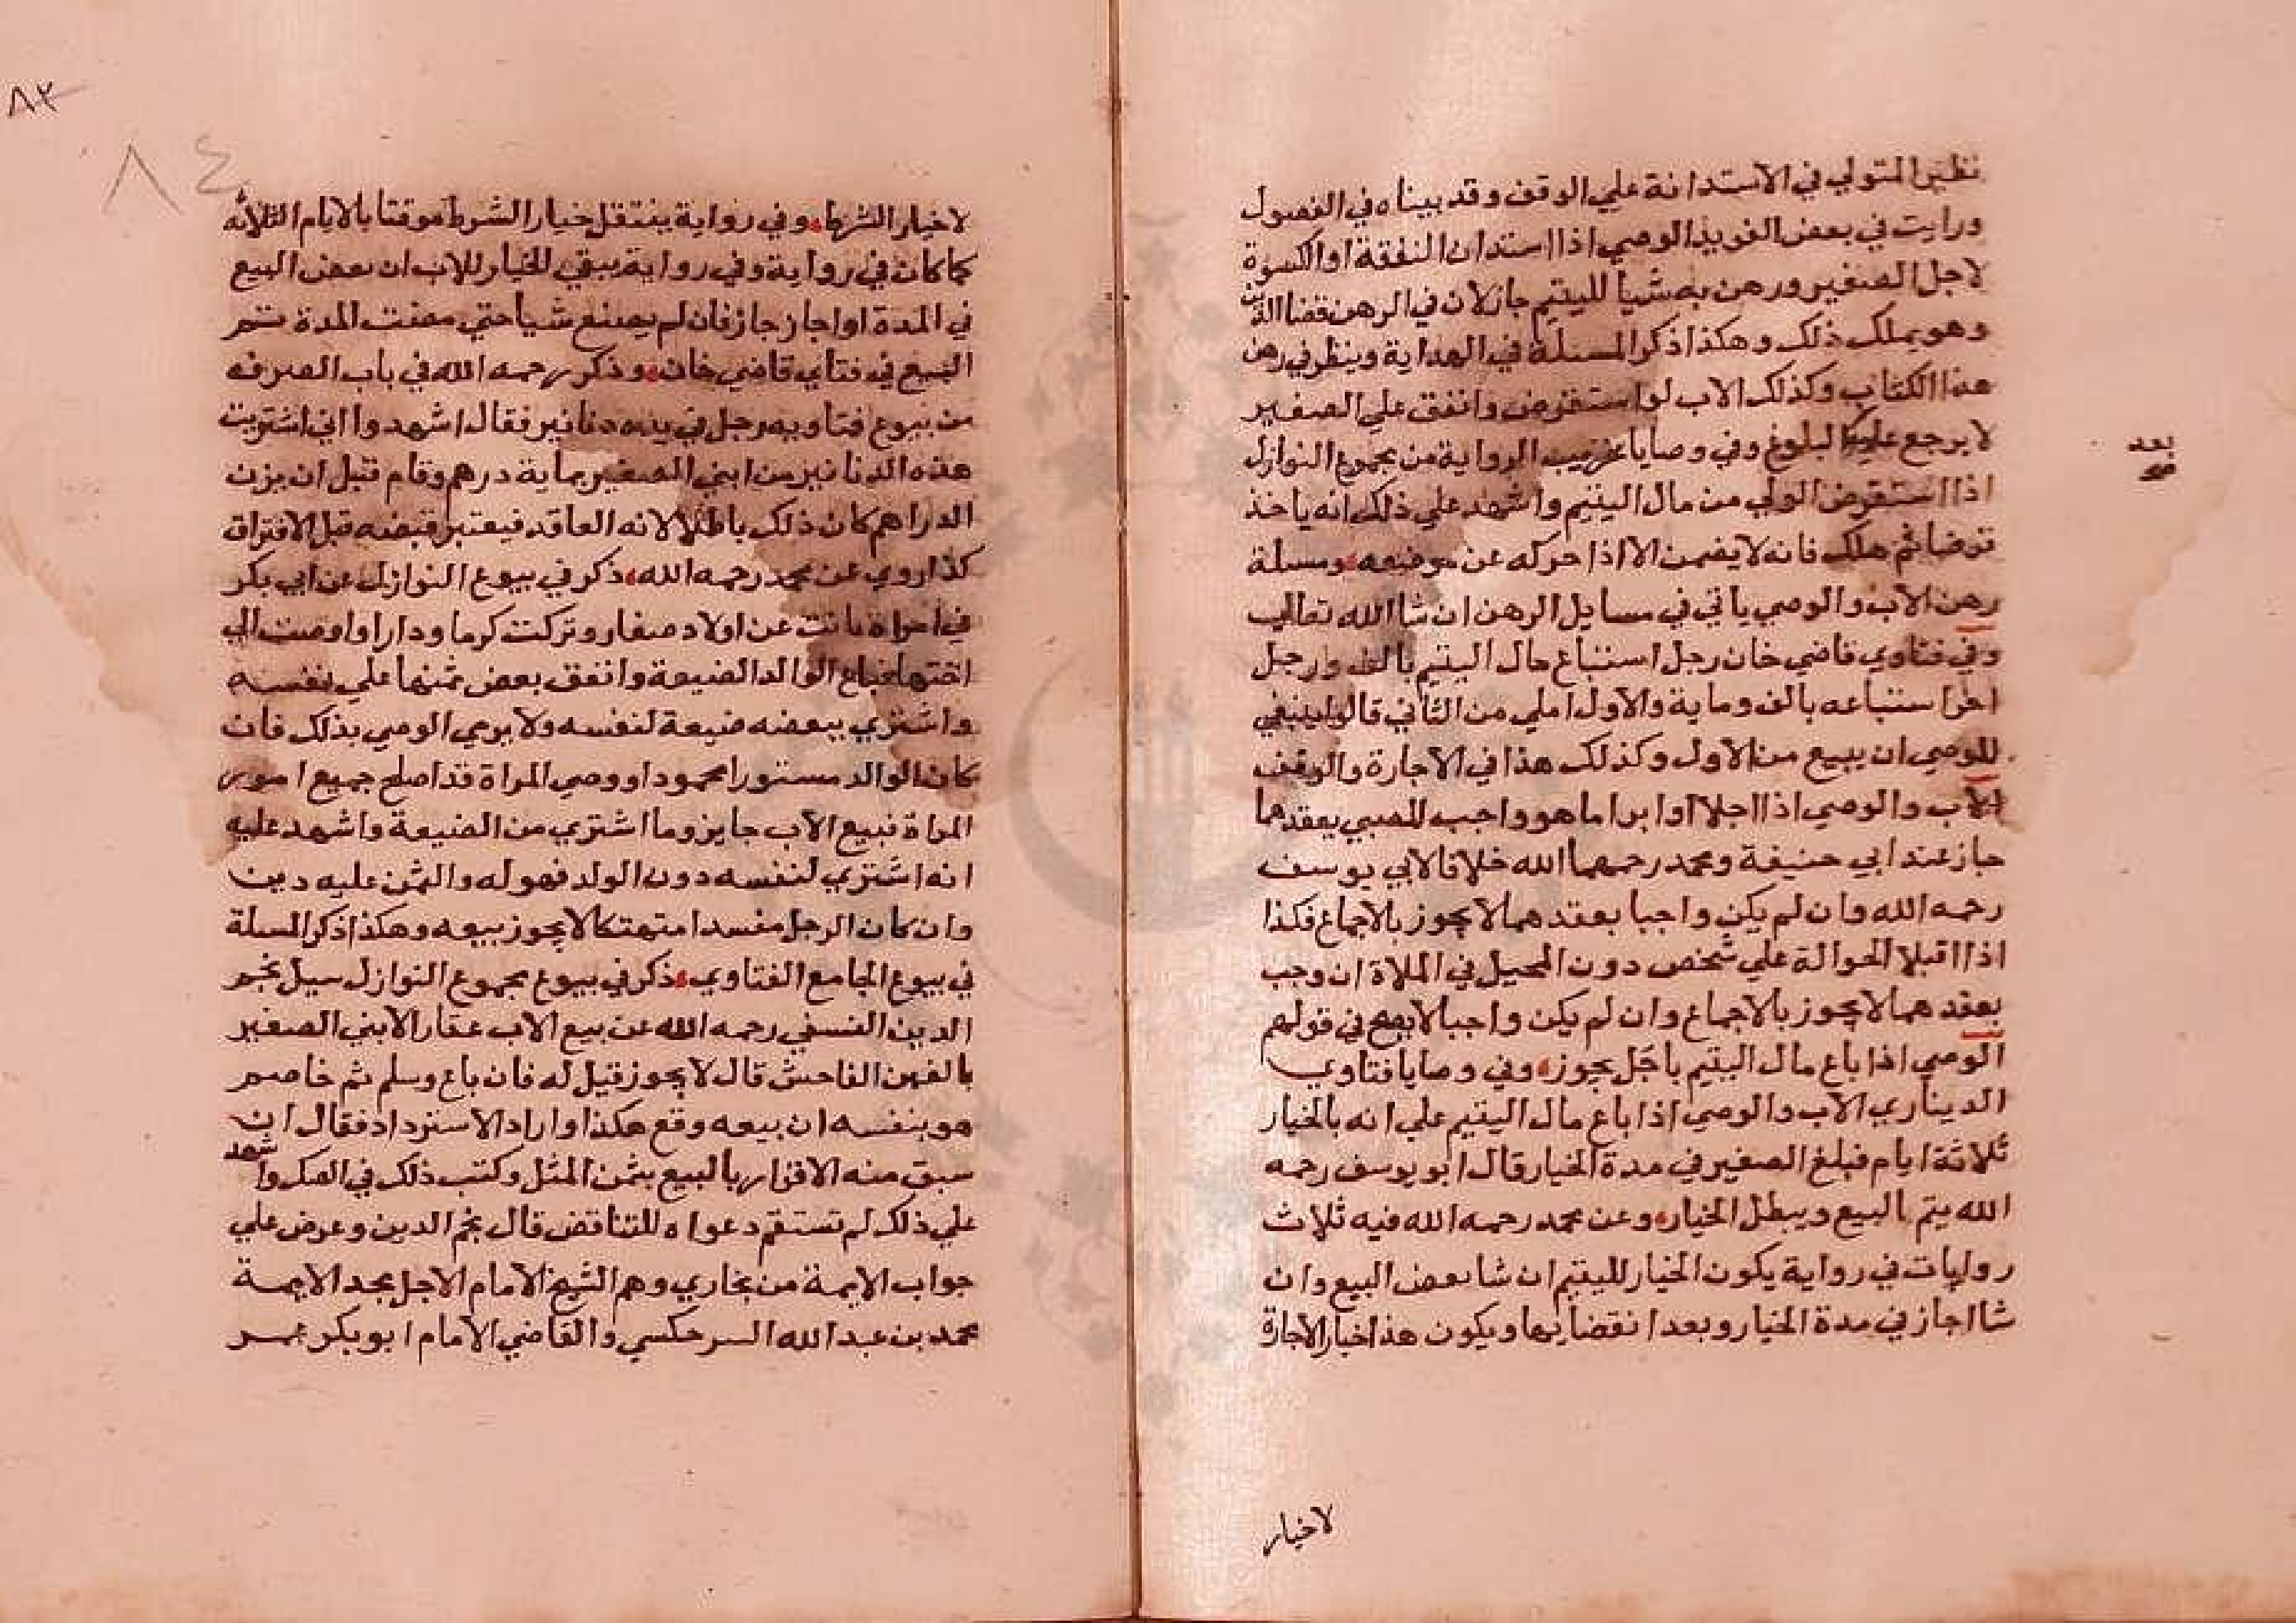 نظير المتولي في الاستدانة علي الوقف وقد بيناه في الفصول
ورايت في بعض الفوايد الوصي اذا استدان النفقة او الكسوة
لاجل الصغير ورهن به شيأ لليتيم جاز لان في الرهن قضا الدين
وهو يملك ذلك وهكذا ذكر المسئلة في الهداية وينظر في رهن
هذا الكتاب وكذلك الاب لو استقرض وانفق علي الصغير
لا يرجع عليه البلوغ وفي وصايا غريب الرواية من مجموع النوازل
بعد
صح
اذا استقرض الولي من مال اليتيم واشهد علي ذلك انه ياخذ
قرضا ثم هلك فانه لا يضمن الا اذا حركه عن موضعه ومسلة
رهن الاب والوصي ياتي في مسايل الرهن ان شا الله تعالي
وفي فتاوي قاضي خان رجل استباع مال اليتيم بالف ورجل
اخر استباعه بالف وماية والاول املي من الثاني قالوا ينبغي
للوصي ان يبيع من الاول وكذلك هذا في الاجارة والوقف
الاب والوصي اذا اجلا او ابرا ما هو واجب للصبي بعقدهما
جاز عند ابي حنيفة ومحمد رحمهما الله خلافا لابي يوسف
رحمه الله وان لم يكن واجبا بعقدهما لا يجوز بالاجماع فكذا
اذا اقبلا الحوالة علي شخص دون المحيل في الملاة ان وجب
بعقدهما لا يجوز بالاجماع وان لم يكن واجبا لا يصح في قولهم
الوصي اذا باع مال اليتيم باجل يجوز وفي وصايا فتاوي
الديناري الاب والوصي اذا باع مال اليتيم علي انه بالخيار
ثلاثة ايام فبلغ الصغير في مدة الخيار قال ابو يوسف رحمه
الله يتم البيع ويبطل الخيار وعن محمد رحمه الله فيه ثلاث
روايات في رواية يكون الخيار لليتيم ان شا نعض البيع وان
شا اجاز في مدة الخيار وبعد انقضايها ويكون هذا خيار الاجازة
لا خيار
٨٣
٨٤
لا خيار الشرط وفي رواية ينتقل خيار الشرط موقتا بالايام الثلاثه
كما كان في رواية وفي رواية يبقي الخيار للاب ان نعض البيع
في المدة او اجاز جاز فان لم يصنع شيأ حتي مضت المدة تم
البيع في فتاي قاضي خان وذكر رحمه الله في باب الصرف
من بيوع فتاويه رجل في يده دنانير فقال اشهدوا اني اشتريت
هذه الدنانير من ابني الصغير بماية درهم وقام قبل ان يزن
الدراهم كان ذلك باطلا لانه العاقد فيعتبر قبضه قبل الافتراق
كذا روي عن محمد رحمه الله ذكر في بيوع النوازل عن ابي بكر
في امراة ماتت عن اولاد صغار وتركت كرما ودارا واوصت الي
اختها فباع الوالد الضيعة وانفق بعض ثمنها علي نفسه
واشتري ببعضه ضيعة لنفسه ولا يرمي الوصي بذلك فان
كان الوالد مستورا محمودا ووصي المراة قد اصلح جميع امور
المراة فبيع الاب جايز وما اشتري من الضيعة واشهد عليه
انه اشتري لنفسه دون الولد فهو له والثمن عليه دين
وان كان الرجل مفسدا متهتكا لا يجوز بيعه وهكذا ذكر المسلة
في بيوع الجامع الفتاوي ذكر في بيوع مجموع النوازل سيل نجم
الدين النسفي رحمه الله عن بيع الاب عقار الابني الصغير
بالغبن الفاحش قال لا يجوز قيل له فان باع وسلم ثم خاصم
هو بنفسه ان بيعه وقع هكذا واراد الاسترداد فقال ان
سبق منه الاقرار بالبيع بثمن المثل وكتب ذلك في الصك واشهد
علي ذلك لم تستقم دعواه للتناقض قال نجم الدين وعرض علي
جواب الايمة من بخاري وهم الشيخ الامام الاجل مجد الايمة
محمد بن عبد الله السرحكسي والقاضي الامام ابو بكر محمد